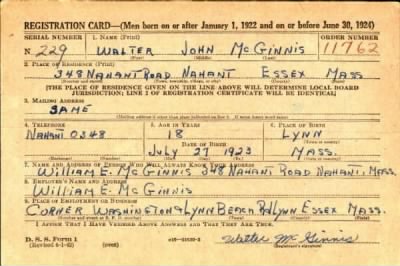 REGISTRATION CARD—(Men born on or after January 1, 1922 and on or before June 30, 1924)
SERIAL NUMBER 1. NAME (Print) ORDER NUMBER
N 229 WALTER JOHN McGINNIS 11762
(First) (Middle) (Last)
2. PLACE OF RESIDENCE (Print)
348 NAHANT ROAD NAHANT ESSEX MASS
[THE PLACE OF RESIDENCE GIVEN ON THE LINE ABOVE WILL DETERMINE LOCAL BOARD
JURISDICTION; LINE 2 OF REGISTRATION CERTIFICATE WILL BE IDENTICAL]
3. MAILING ADDRESS
SAME
[Mailing address if other than place indicated on line 2. If same insert word same]
4. TELEPHONE 5. AGE IN YEARS 6. PLACE OF BIRTH
NAHANT 0348 18 LYNN
DATE OF BIRTH
JULY 27 1923 MASS.
7. NAME AND ADDRESS OF PERSON WHO WILL ALWAYS KNOW YOUR ADDRESS
WILLIAM E. McGINNIS 348 NAHANT ROAD NAHANT, MASS.
8. EMPLOYER'S NAME AND ADDRESS
WILLIAM E. McGINNIS
9. PLACE OF EMPLOYMENT OR BUSINESS
CORNER WASHINGTON & LYNN BEACH RD LYNN ESSEX MASS.
I AFFIRM THAT I HAVE VERIFIED ABOVE ANSWERS AND THAT THEY ARE TRUE.
D. S. S. Form 1
(Revised 6-1-42) (over)
Walter McGinnis
(Registrant's signature)